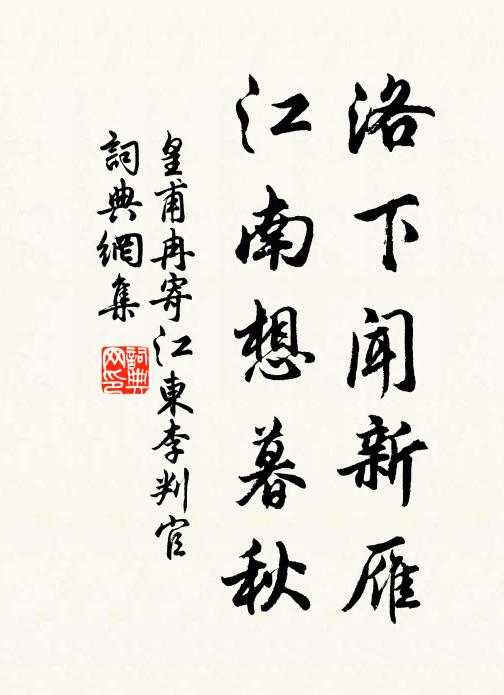 洛下闻新雁
江南想暮秋
皇甫冉寄江東李判官
詞典網集
詞典网印